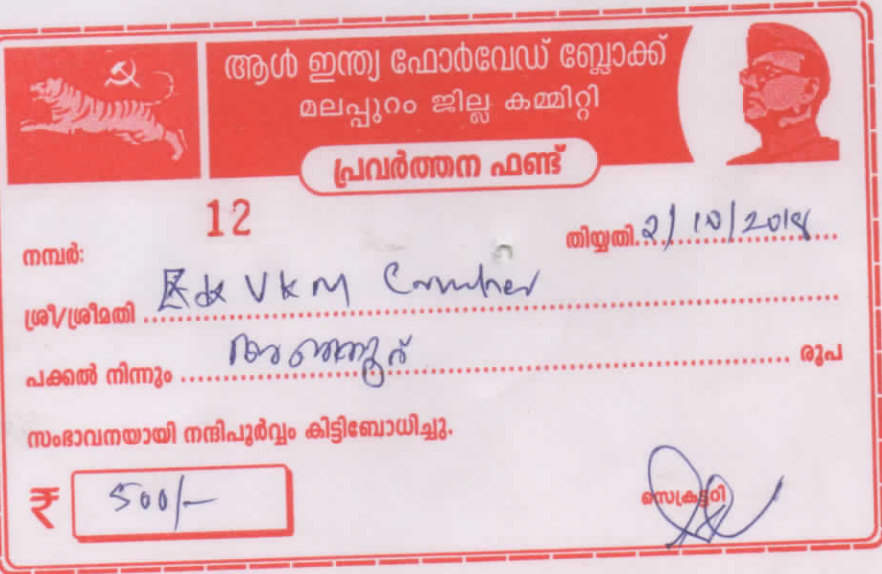 ആൾ ഇന്ത്യ ഫോർവേഡ് ബ്ലോക്ക്
മലപ്പുറം ജില്ല കമ്മിറ്റി
പ്രവർത്തന ഫണ്ട്
നമ്പർ: 12
തിയ്യതി. 2/10/2018
ശ്രീ/ശ്രീമതി VKM
പക്കൽ നിന്നും അഞ്ഞൂറ് രൂപ
സംഭാവനയായി നന്ദിപൂർവ്വം കിട്ടിബോധിച്ചു.
₹ 500/-
സെക്രട്ടറി